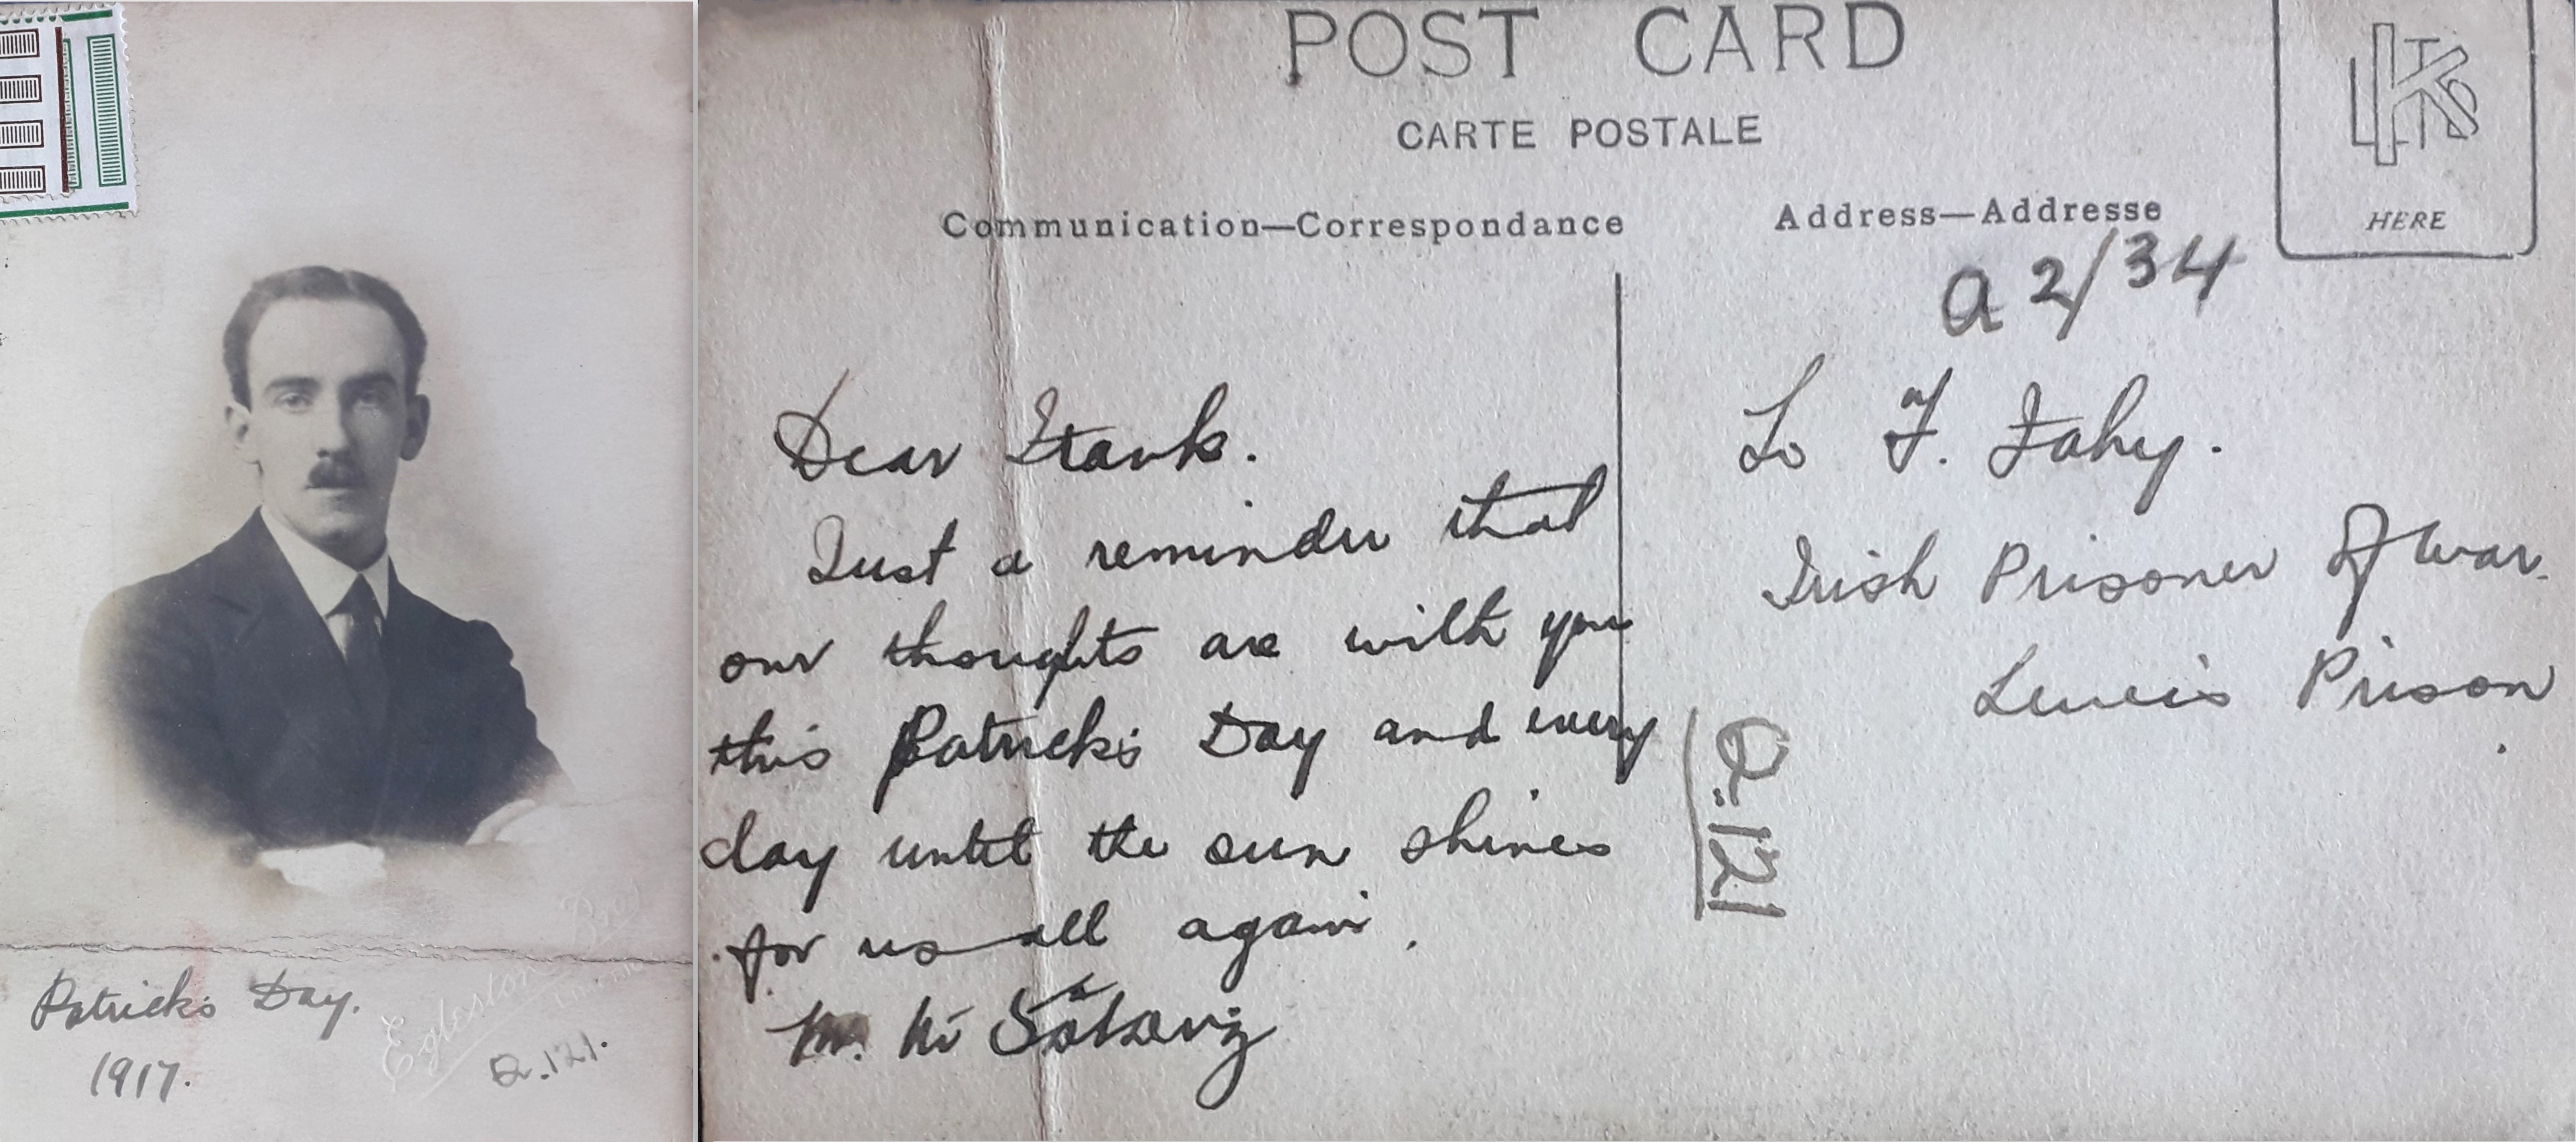 Patricks Day.
1917.
Q.121.
POST CARD
CARTE POSTALE
Communication—Correspondance
Address—Addresse
HERE
a 2/34
Dear Frank.
Just a reminder that
our thoughts are with you
this Patricks Day and every
day until the sun shines
for us all again.
M. Ní
To F. Fahy.
Irish Prisoner of War.
Lewis Prison
Q-121